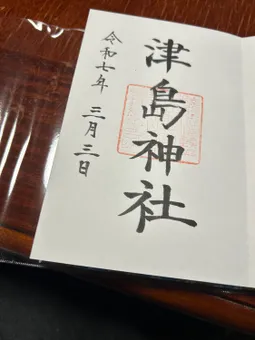 津島神社
令和七年 三月三日